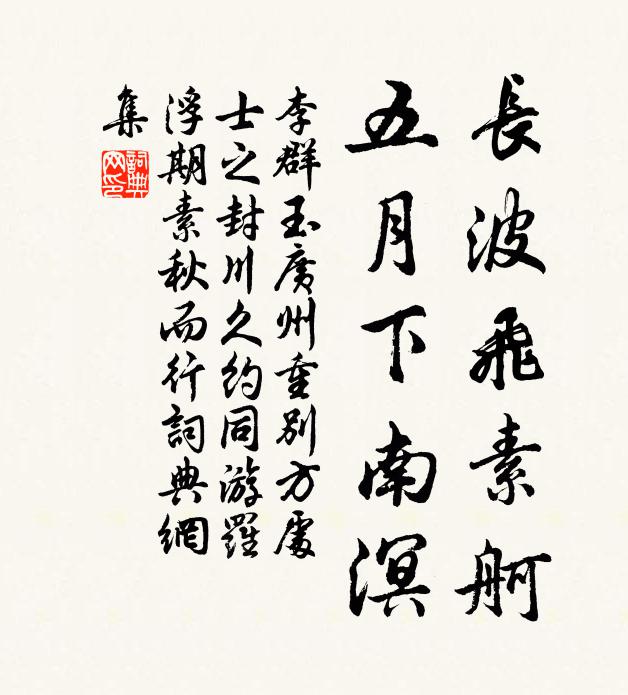 長波飛素舸
五月下南溟
李群玉廣州重別方處
士之封川久約同游羅
浮期素秋而行詞典網
集
詞典
网印